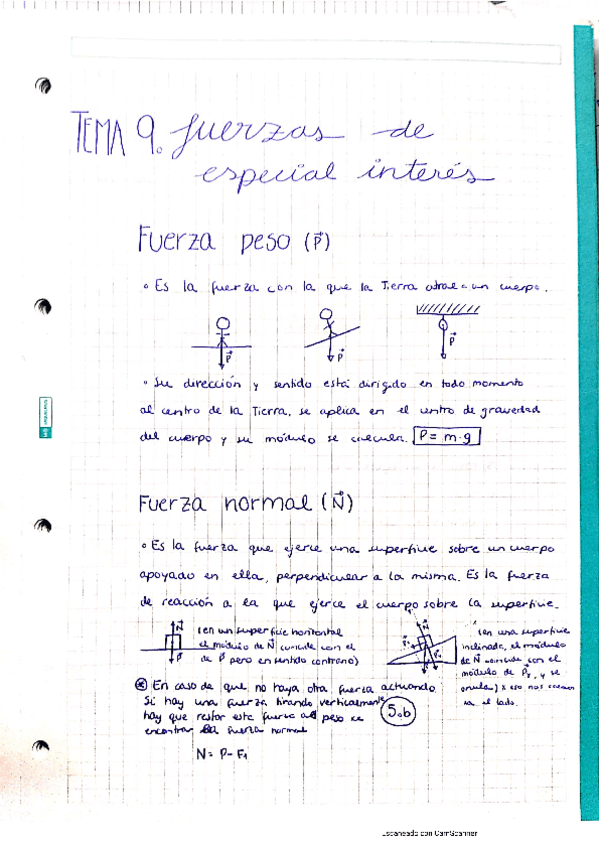 TEMA 9. fuerzas de
especial interés
Fuerza peso (P⃗)
• Es la fuerza con la que la Tierra atrae a un cuerpo.
P⃗
P⃗
P⃗
• Su dirección y sentido está dirigido en todo momento
al centro de la Tierra, se aplica en el centro de gravedad
del cuerpo y su módulo se calcula. P = m·g
Fuerza normal (N⃗)
• Es la fuerza que ejerce una superficie sobre un cuerpo
apoyado en ella, perpendicular a la misma. Es la fuerza
de reacción a la que ejerce el cuerpo sobre la superficie.
N⃗
P⃗
(en un superficie horizontal
el módulo de N⃗ coincide con el
de P⃗ pero en sentido contrario)
(en una superficie
inclinada, el módulo
de N⃗ coincide con el
módulo de P⃗y, y se
anulan) x eso nos
el lado.
* En caso de que no haya otra fuerza actuando
Si hay una fuerza tirando verticalmente
hay que restar esta fuerza al peso
encontrar la fuerza normal
5.b
N = P - F1
Escaneado con CamScanner